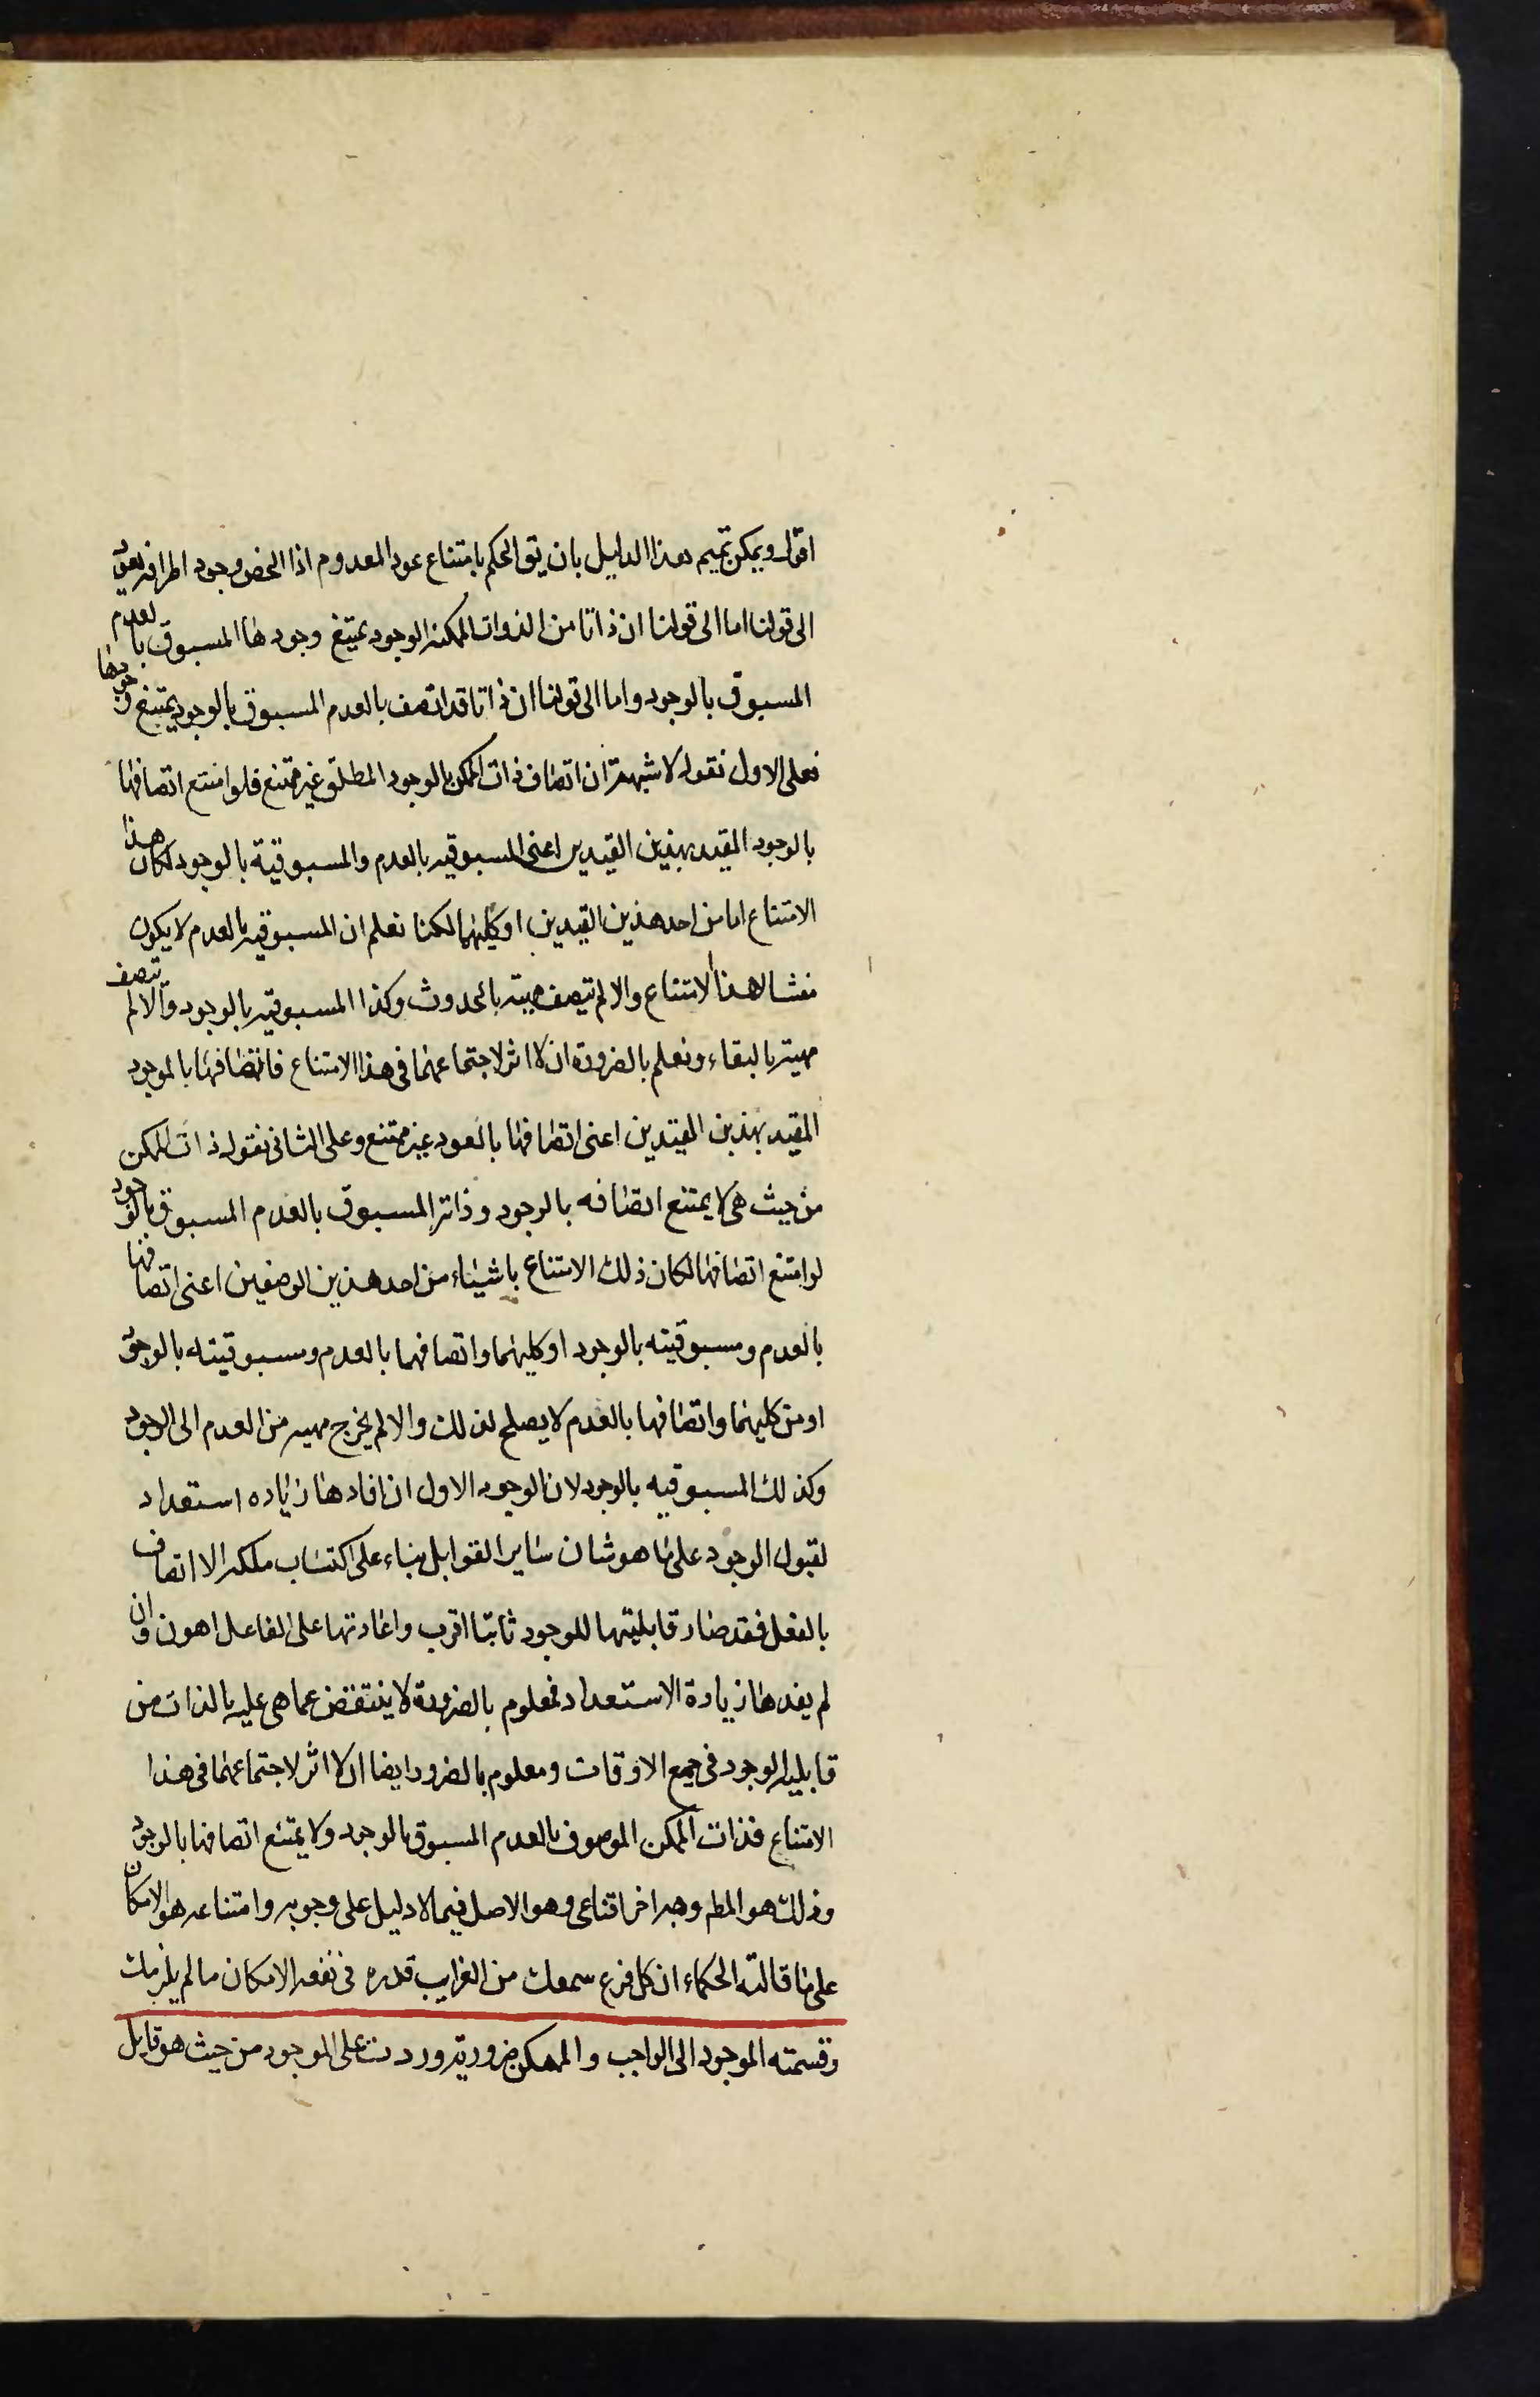 اقول ويمكن تتميم هذا الدليل بان يق الحكم بامتناع عود المعدوم اذا الخص وجود اطرافه يعود
الى قولنا اما الى قولنا ان ذاتا من الذوات الممكنه الوجود يمتنع وجودها المسبوق بالعدم
المسبوق بالوجود واما الى قولنا ان ذاتا قد اتصف بالعدم المسبوق بالوجود يمتنع وجودها
فعلى الاول نقول لا شبهة ان اتصاف ذات الممكن بالوجود المطلق غير ممتنع فلو امتنع اتصافها
بالوجود المقيد بهذين القيدين اعنى المسبوقيه بالعدم والمسبوقية بالوجود لكان هذا
الامتناع اما من احد هذين القيدين او كليهما لكنا نعلم ان المسبوقيه بالعدم لا يكون
منشا لهذا الامتناع والا لم تتصف مهيته بالحدوث وكذا المسبوقيه بالوجود والا لم تتصف
مهيته بالبقاء ونعلم بالضرورة ان لا اثر لاجتماعهما فى هذا الامتناع فاتصافها بالموجود
المقيد بهذين المقيدين اعنى اتصافها بالعود غير ممتنع وعلى الثانى نقول ذات الممكن
من حيث هى لا يمتنع اتصافه بالوجود وذاته المسبوق بالعدم المسبوق بالوجود
لو امتنع اتصافها لكان ذلك الامتناع باشيئاء من احد هذين الوصفين اعنى اتصافها
بالعدم ومسبوقيته بالوجود او كليهما واتصافهما بالعدم ومسبوقيته بالوجود
او من كليهما واتصافها بالعدم لا يصلح لذلك والا لم يخرج مهيه من العدم الى الوجود
وكذلك المسبوقيه بالوجود لان الوجود الاول ان افادها زياده استعداد
لقبول الوجود على ما هو شان ساير القوابل بناء على اكتساب ملكه الا اتصاف
بالفعل فقد صار قابليتها للوجود ثانيا اقرب واعادتها على الفاعل اهون وان
لم يفدها زيادة الاستعداد فمعلوم بالضرورة لا ينتقض عما هى عليه بالذات من
قابليه الوجود فى جميع الاوقات ومعلوم بالضرورة ايضا ان لا اثر لاجتماعهما فى هذا
الامتناع فذات الممكن الموصوف بالعدم المسبوق بالوجود ولا يمتنع اتصافها بالوجود
وذلك هو المطم وجه اخر اقناعى وهو الاصل فيما لا دليل على وجوبه وامتناعه هو الامكان
على ما قالته الحكماء ان كل فزع سمعك من الغرايب قدره فى نفعه الامكان ما لم يلزمك
وقسمته الموجود الى الواجب والممكن ضرورية وردت على الموجود من حيث هو قابل